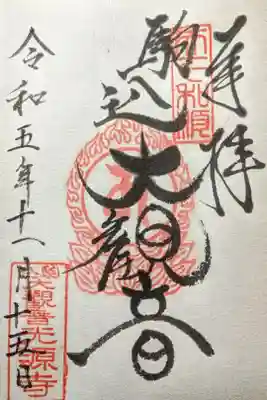 奉拝
駒込大観音
令和五年十一月十五日
駒込大觀音光源寺